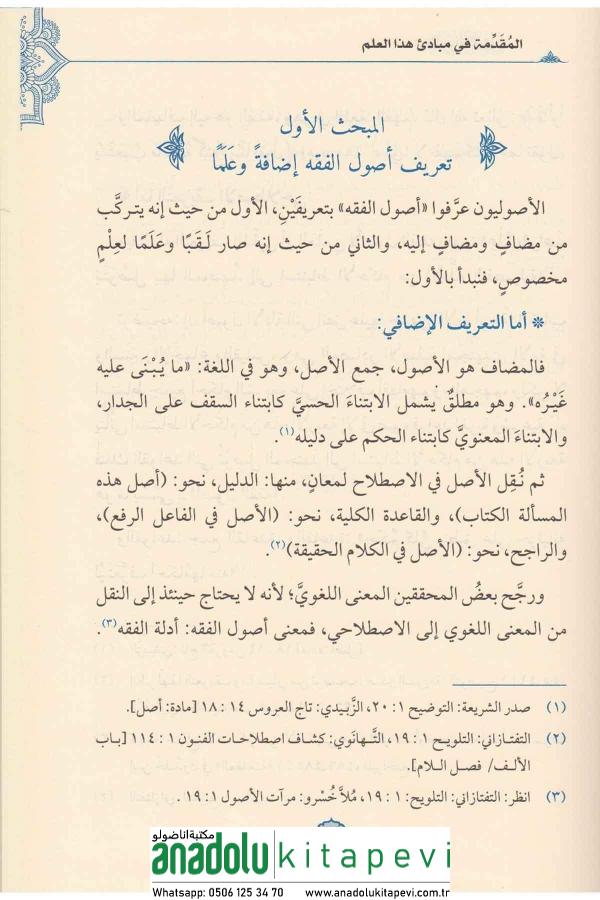 المُقَدِّمة في مبادئ هذا العلم
المبحث الأول
تعريف أصول الفقه إضافةً وعَلَمًا
الأصوليون عرَّفوا «أصول الفقه» بتعريفَيْنِ، الأول من حيث إنه يتركَّب
من مضافٍ ومضافٍ إليه، والثاني من حيث إنه صار لَقَبًا وعَلَمًا لعِلْمٍ
مخصوصٍ، فنبدأ بالأول:
* أما التعريف الإضافي:
فالمضاف هو الأصول، جمع الأصل، وهو في اللغة: «ما يُبْنَى عليه
غَيْرُه». وهو مطلقٌ يشمل الابتناءَ الحسيَّ كابتناء السقف على الجدار،
والابتناءَ المعنويَّ كابتناء الحكم على دليله(١).
ثم نُقِل الأصل في الاصطلاح لمعانٍ، منها: الدليل، نحو: (أصل هذه
المسألة الكتاب)، والقاعدة الكلية، نحو: (الأصل في الفاعل الرفع)،
والراجح، نحو: (الأصل في الكلام الحقيقة)(٢).
ورجَّح بعضُ المحققين المعنى اللغويَّ؛ لأنه لا يحتاج حينئذ إلى النقل
من المعنى اللغوي إلى الاصطلاحي، فمعنى أصول الفقه: أدلة الفقه(٣).
(١) صدر الشريعة: التوضيح ١: ٢٠، الزَّبيدي: تاج العروس ١٤: ١٨ [مادة: أصل].
(٢) التفتازاني: التلويح ١: ١٩، التَّهانَوي: كشاف اصطلاحات الفنون ١: ١١٤ [باب
الألف/ فصل اللام].
(٣) انظر: التفتازاني: التلويح: ١: ١٩، مُلاَّ خُسْرو: مرآت الأصول ١: ١٩.
مكتبة اناضولو
anadolu kitapevi
Whatsapp: 0506 125 34 70 www.anadolukitapevi.com.tr